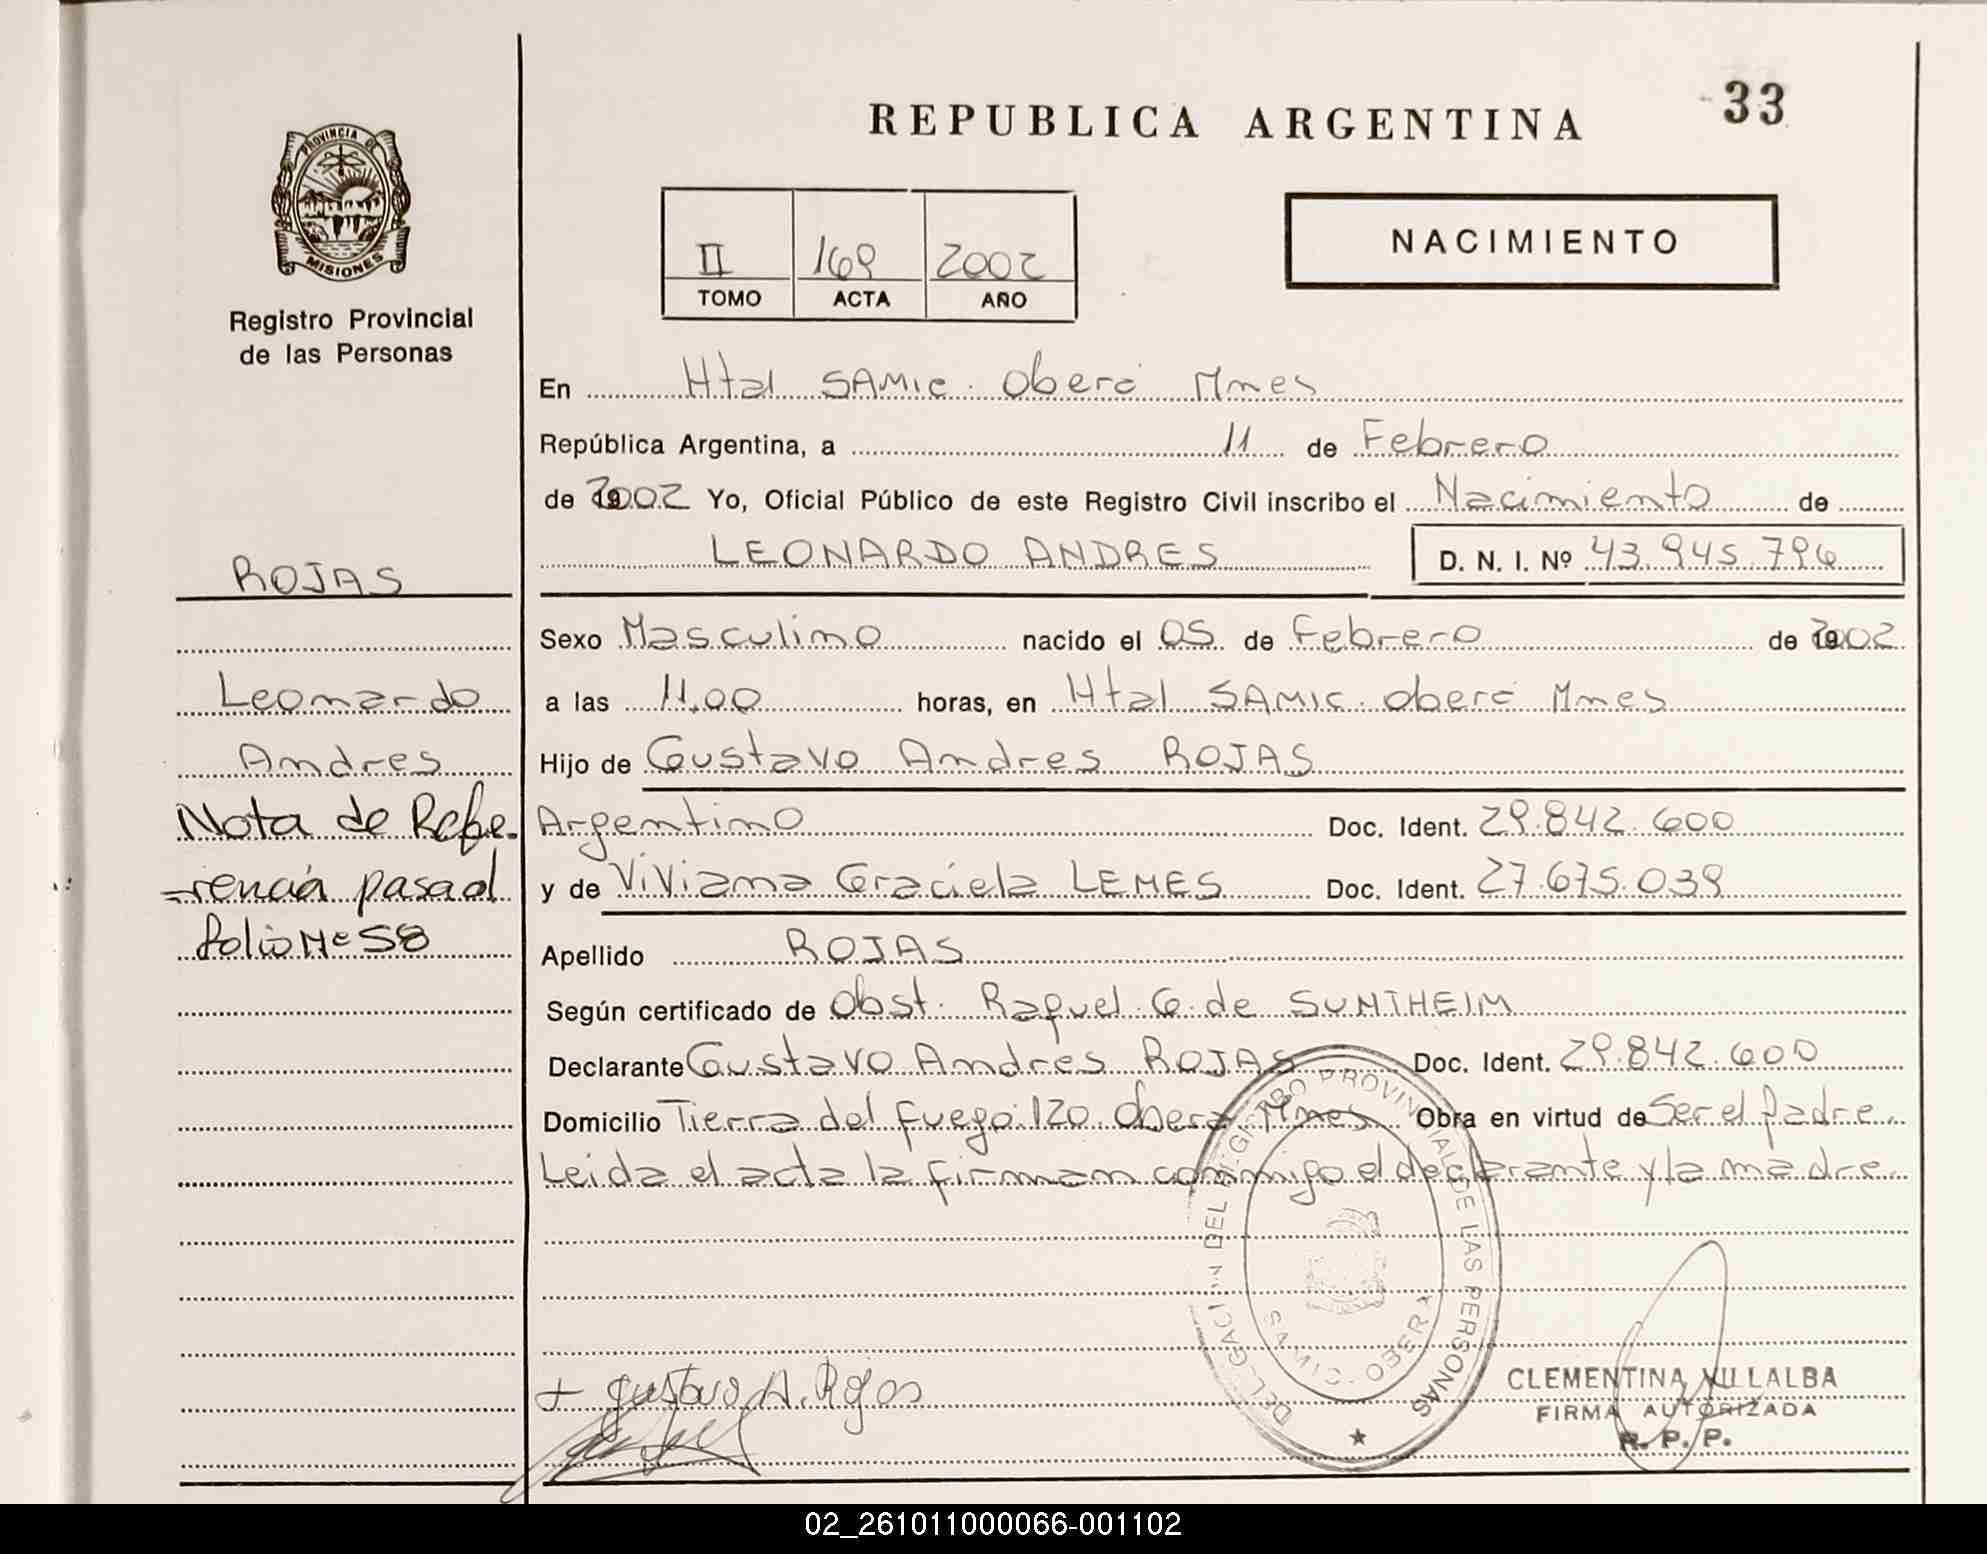 REPUBLICA ARGENTINA
33
PROVINCIA DE
MISIONES
Registro Provincial
de las Personas
II 169 2002
TOMO ACTA AÑO
NACIMIENTO
En Htal SAMIC. Oberá Mnes
República Argentina, a 11 de Febrero
de 2002 Yo, Oficial Público de este Registro Civil inscribo el Nacimiento de
LEONARDO ANDRES D. N. I. Nº 43.945.796
ROJAS
Leonardo
Andres
Nota de Refe-
-rencia pasa al
folio Nº 58
Sexo Masculino nacido el 05 de Febrero de 2002
a las 11,00 horas, en Htal SAMIC. Oberá Mnes
Hijo de Gustavo Andres ROJAS
Argentino Doc. Ident. 29.842.600
y de Viviana Graciela LEMES Doc. Ident. 27.675.039
Apellido ROJAS
Según certificado de Obst. Raquel G. de SUNTHEIM
Declarante Gustavo Andrés ROJAS Doc. Ident. 29.842.600
Domicilio Tierra del fuego 120. Oberá Mnes Obra en virtud de Ser el padre
Leida el acta la firman conmigo el declarante y la madre
DELEGACION DEL REGISTRO PROVINCIAL DE LAS PERSONAS
SAMIC - OBERA
+ Gustavo A. Rojas
CLEMENTINA VILLALBA
FIRMA AUTORIZADA
R. P. P.
02_261011000066-001102